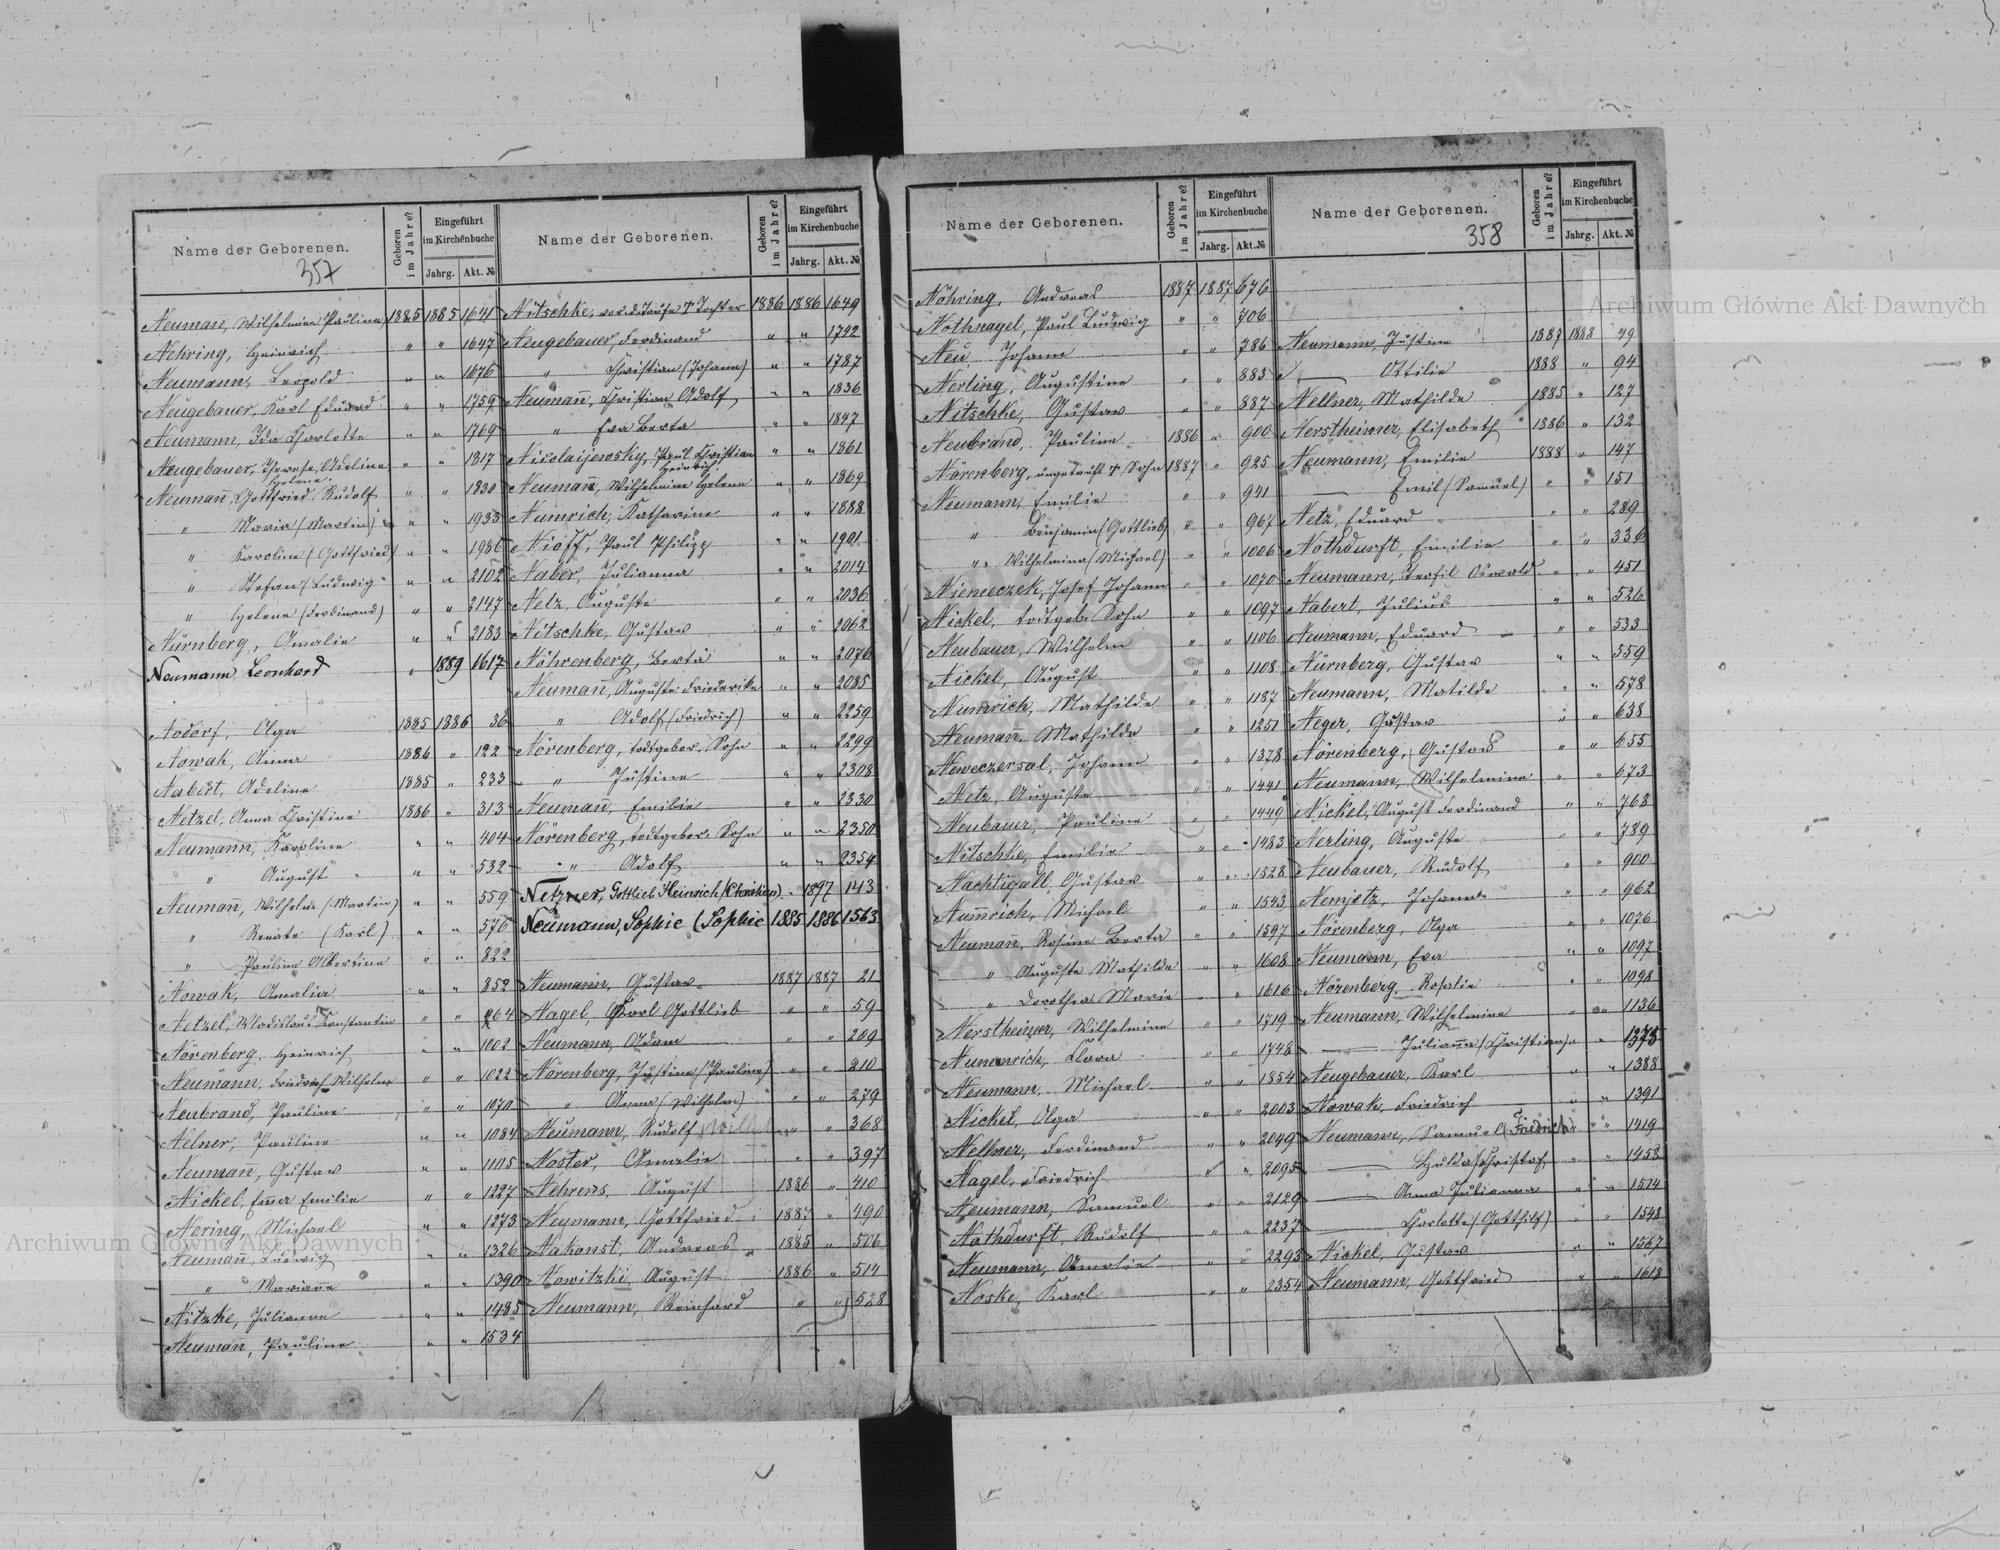 Name der Geborenen.
Geboren im Jahre?
Eingeführt im Kirchenbuche
Jahrg.
Akt. №
357
Neuman, Wilhelmine Pauline 1885 1885 1641
Nehring, Heinrich " " 1647
Neumann, Leopold " " 1676
Neugebauer, Karl Eduard " " 1759
Neumann, Ida Charlotte " " 1769
Neugebauer, Therese, Adeline Helene " " 1817
Neumann̄, Gottfried Rudolf " " 1830
" Maria (Martin) " " 1933
" Karoline (Gottfried) " " 1986
" Stefan (Ludwig " " 2102
" Helene (Ferdinand) " " 2147
Nürnberg, Amalie " " 2183
Neumann Leonhard " 1889 1617
Nodorf, Olga 1885 1886 36
Nowak, Anna 1886 " 122
Nabert, Adeline 1885 " 233
Netzel, Anna Christine 1886 " 313
Neumann, Karoline " " 404
" August " " 532
Neuman̄, Wilhelm (Martin) " " 559
" Renate (Karl) " " 576
" Pauline Albertine " " 822
Nowak, Amalia " " 852
Netzel, Wladislaus Konstantin " " 964
Nörenberg, Heinrich " " 1002
Neumann, Friedrich Wilhelm " " 1022
Neubrand, Pauline " " 1070
Nelner, Pauline " " 1084
Neuman, Gustav " " 1105
Nickel, Em̄a Emilie " " 1227
Nering, Michael " " 1273
Neuman̄, Ludwig " " 1326
" Marian̄e " " 1390
Nitzke, Julianne " " 1485
Neuman̄, Pauline " " 1534
Name der Geborenen.
Geboren im Jahre?
Eingeführt im Kirchenbuche
Jahrg.
Akt. №
Nitschke, vor d. Taufe † Tochter 1886 1886 1649
Neugebauer, Ferdinand " " 1742
" Christian (Johann) " " 1787
Neuman̄, Christian Adolf " " 1836
" Eva Berta " " 1847
Nicolaijewsky, Paul Christian Heinrich " " 1861
Neuman̄, Wilhelmine Helene " " 1869
Numrich, Katharine " " 1888
Nioff, Paul Philipp " " 1901
Naber, Julianna " " 2014
Netz, Auguste " " 2036
Nitschke, Gustav " " 2062
Nöhrenberg, Berta " " 2076
Neuman, Auguste Friederike " " 2085
" Adolf (Friedrich) " " 2259
Nörenberg, todtgebor. Sohn " " 2299
" Justine " " 2308
Neuman, Emilie " " 2330
Nörenberg, todtgebor. Sohn " " 2350
" Adolf " " 2354
Netzner, Gottlieb Heinrich (Christian) " 1897 143
Neumann, Sophie (Sophie 1885 1886 1563
Neumann, Gustav 1887 1887 21
Nagel, Karl Gottlieb " " 59
Neumann, Adam " " 209
Nörenberg, Justine (Pauline) " " 210
" Anna (Wilhelm) " " 279
Neumann, Rudolf " " 368
Noster, Amalie " " 397
Nehrens, August 1886 " 410
Neumann, Gottfried 1887 " 490
Nakonst, Andreas 1885 " 506
Nowitzki, August 1886 " 514
Neumann, Reinhard " " 528
Name der Geborenen.
Geboren im Jahre?
Eingeführt im Kirchenbuche
Jahrg.
Akt. №
Nöhring, Andreas 1887 1887 676
Nothnagel, Paul Ludwig " " 706
Neu, Johann " " 786
Nerling, Augustine " " 883
Nitschke, Gustav " " 887
Neubrand, Pauline 1886 " 900
Nörenberg, ungetauft † Sohn 1887 " 925
Neumann, Emilie " " 941
" Benjamin (Gottlieb) " " 967
" Wilhelmine (Michael) " " 1006
Niemeczek, Josef Johann " " 1070
Nickel, todtgeb. Sohn " " 1097
Neubauer, Wilhelm " " 1106
Nickel, August " " 1108
Numrich, Mathilde " " 1187
Neuman̄, Mathilde " " 1251
Neweczersal, Johann " " 1378
Netz, Auguste " " 1441
Neubauer, Pauline " " 1449
Nitschke, Emilie " " 1483
Nachtigall, Gustav " " 1528
Num̄rich, Michael " " 1543
Neuman̄, Rosine Berta " " 1597
" Auguste Mathilde " " 1608
" Dorothea Marie " " 1616
Nerstheimer, Wilhelmine " " 1719
Nummrich, Klara " " 1748
Neumann, Michael " " 1854
Nickel, Olga " " 2003
Nellner, Ferdinand " " 2049
Nagel, Friedrich " " 2095
Neumann, Samuel " " 2129
Nothdurft, Rudolf " " 2237
Neumann, Amalie " " 2293
Noske, Karl " " 2354
Name der Geborenen.
358
Geboren im Jahre?
Eingeführt im Kirchenbuche
Jahrg.
Akt. №
Neumann, Justine 1887 1888 49
Ottilie 1888 " 94
Nellner, Mathilde 1885 " 127
Nerstheimer, Elisabeth 1886 " 132
Neumann, Emilie 1888 " 147
Emil (Samuel) " " 151
Netz, Eduard " " 289
Nothdurft, Emilie " " 336
Neumann, Teofil Oswald " " 451
Nabert, Julius " " 526
Neumann, Eduard " " 533
Nürnberg, Gustav " " 559
Neumann, Matilde " " 578
Neger, Gustav " " 638
Nörenberg, Gustav " " 655
Neumann, Wilhelmine " " 673
Nickel, August Ferdinand " " 768
Nerling, Auguste " " 789
Neubauer, Rudolf " " 900
Nemjetz, Johann " " 962
Nörenberg, Olga " " 1076
Neumann, Eva " " 1097
Nörenberg, Rosalie " " 1098
Neumann, Wilhelmine " " 1136
Julian̄a (Christian) " " 1375
Neugebauer, Karl " " 1388
Nowak, Friedrich " " 1391
Neumann, Samuel (Friedrich) " " 1419
Hulda (Christof) " " 1458
Anna Julianna " " 1514
Charlotte (Gottfried) " " 1548
Nickel, Gustav " " 1567
Neumann, Gottfried " " 1618
Archiwum Główne Akt Dawnych
Archiwum Główne Akt Dawnych